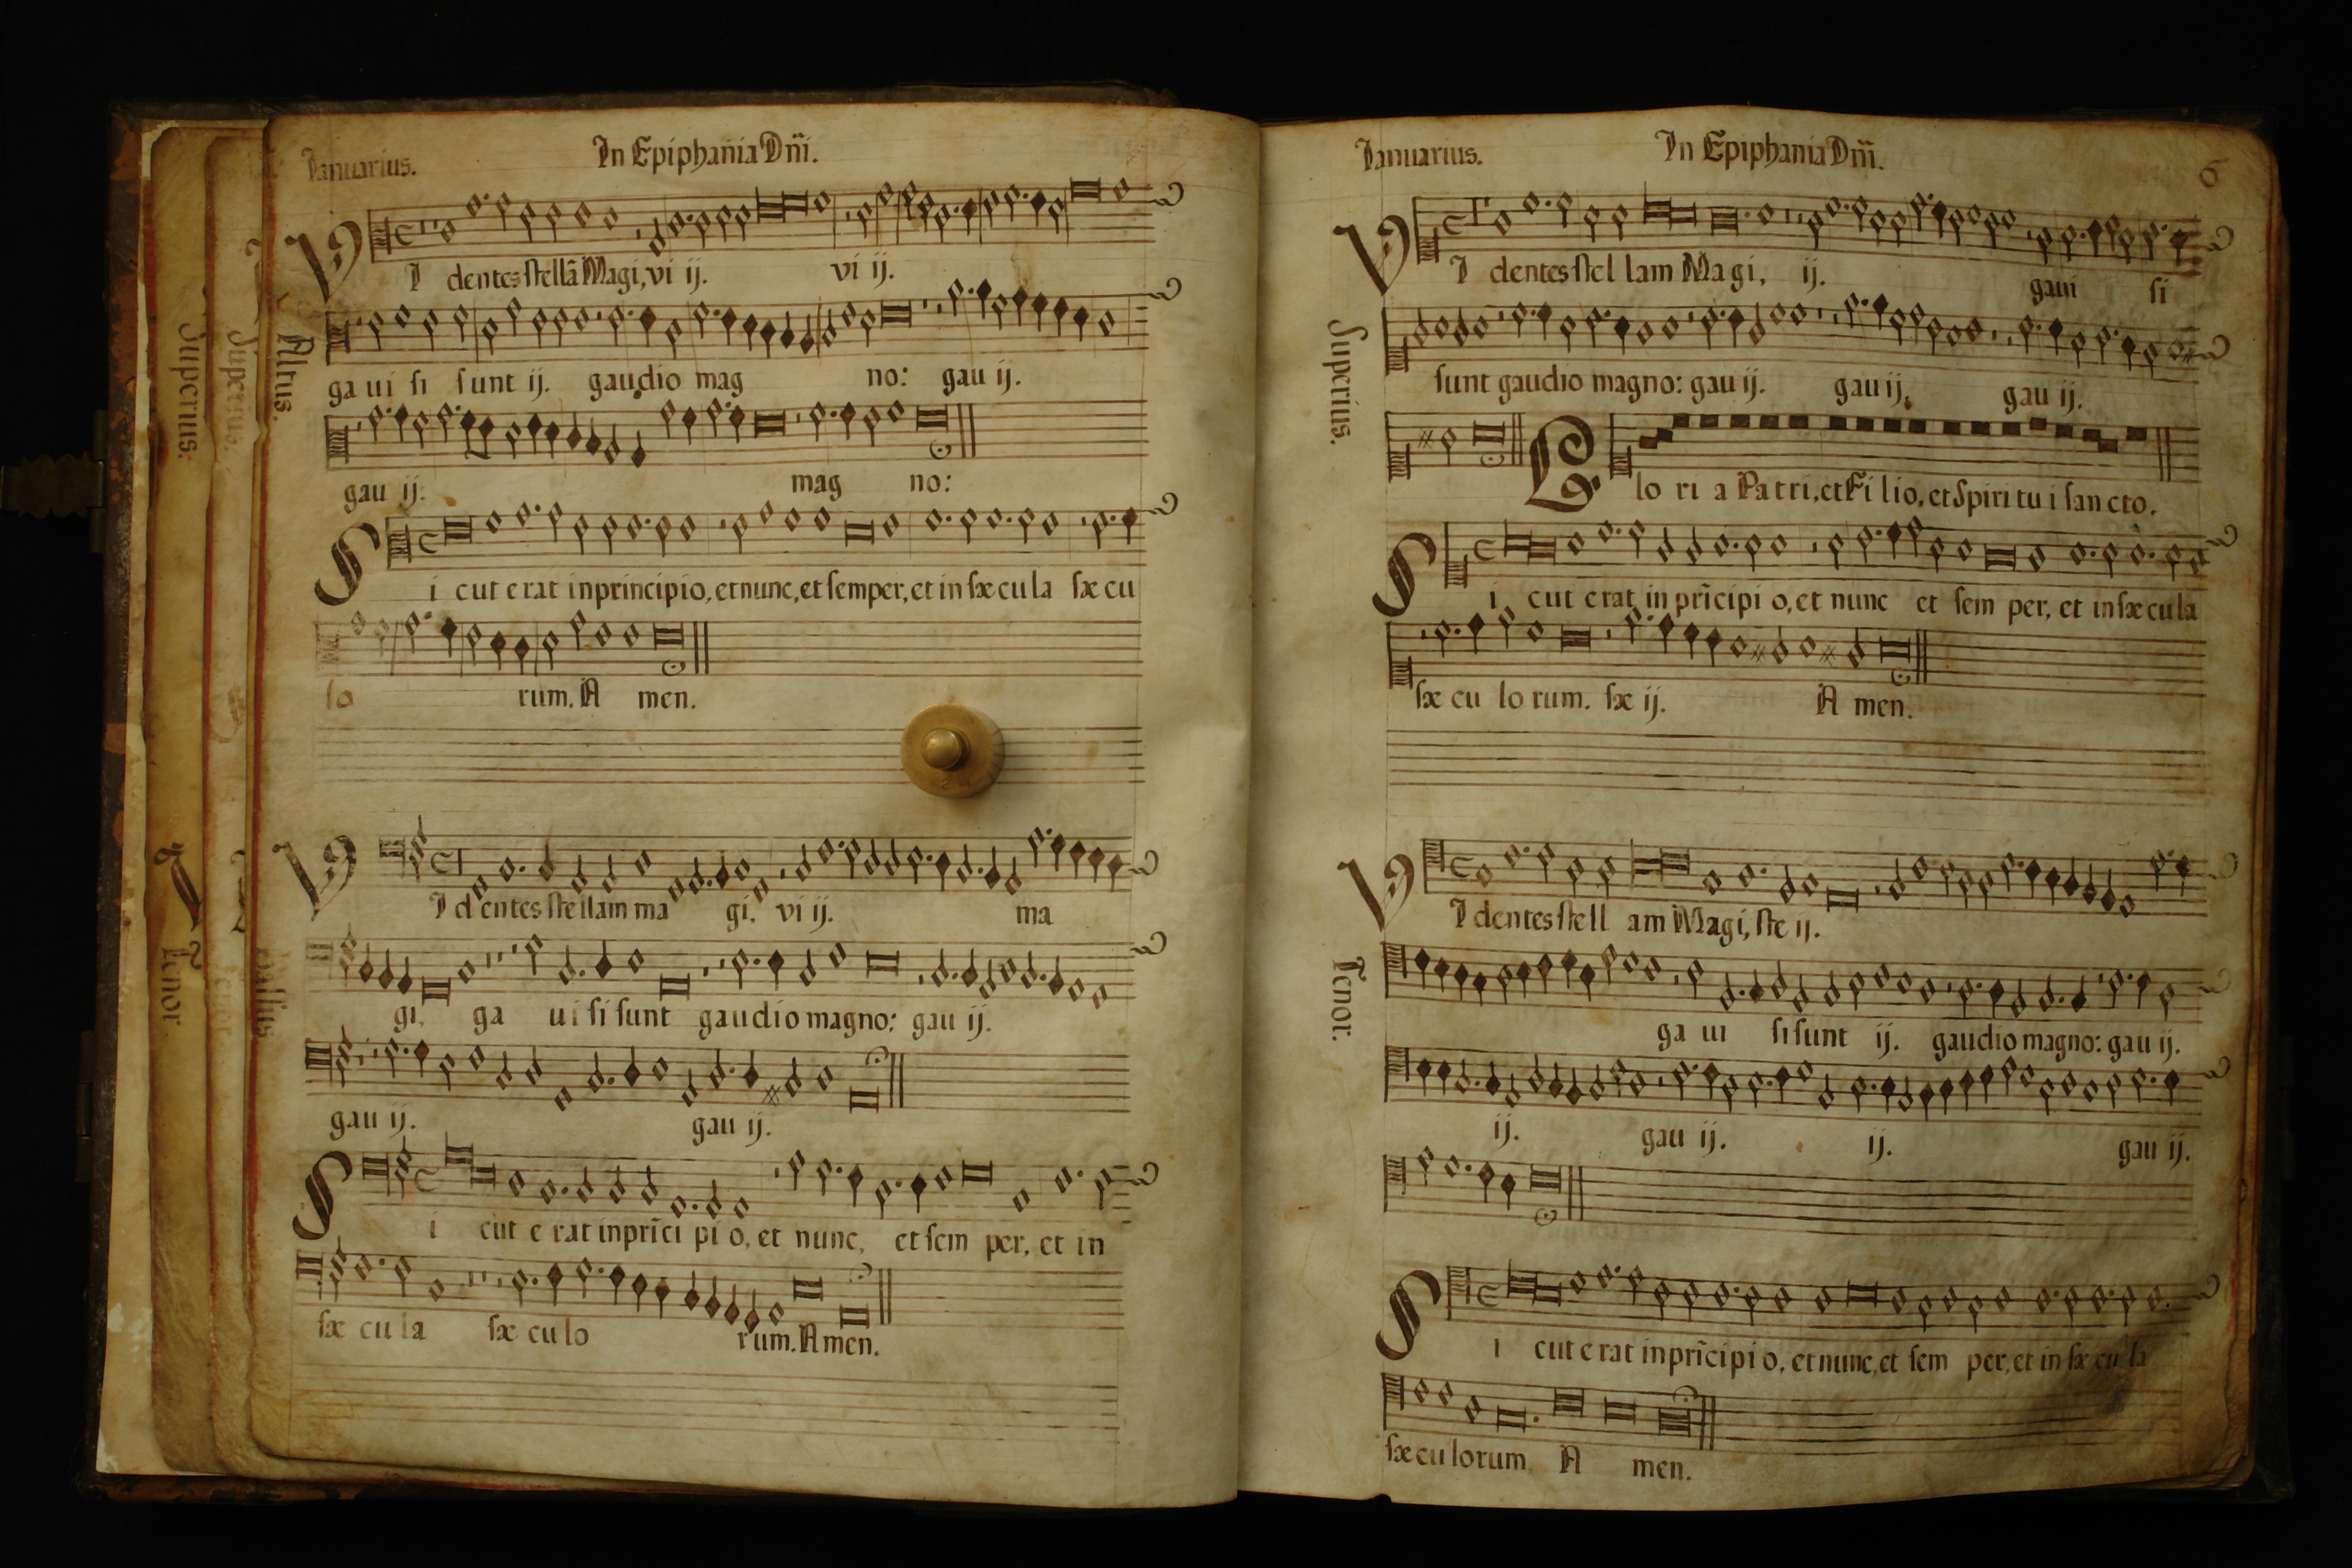 Ianuarius.
In Epiphania Dñi.
I dentes stellã Magi, vi ij. vi ij.
Altus.
ga ui si sunt ij. gaudio mag no: gau ij.
gau ij. mag no:
S i cut erat in principio, et nunc, et semper, et in sæcula sæ cu
lo rum. A men.
V I dentes stellam ma gi, vi ij. ma
gi, ga ui si sunt gaudio magno: gau ij.
gau ij. gau ij.
S i cut e rat in prĩci pi o, et nunc, et sem per, et in
sæ cu la sæ cu lo rum. A men.
Superius.
Superius.
Tenor
Ianuarius.
In Epiphania Dñi.
6
V I dentes stel lam Magi, ij. gaui si
Superius.
sunt gaudio magno: gau ij. gau ij. gau ij.
G lo ri a Patri, et Fi lio, et Spiri tu i san cto.
S i cut erat in prĩcipi o, et nunc et sem per, et in sæcula
sæ cu lo rum. sæ ij. A men.
V I dentes stell am Magi, ste ij.
Tenor.
ga ui si sunt ij. gaudio magno: gau ij.
ij. gau ij. ij. gau ij.
S i cut e rat in prĩcipi o, et nunc, et sem per, et in sæ cu la
sæ cu lorum A men.